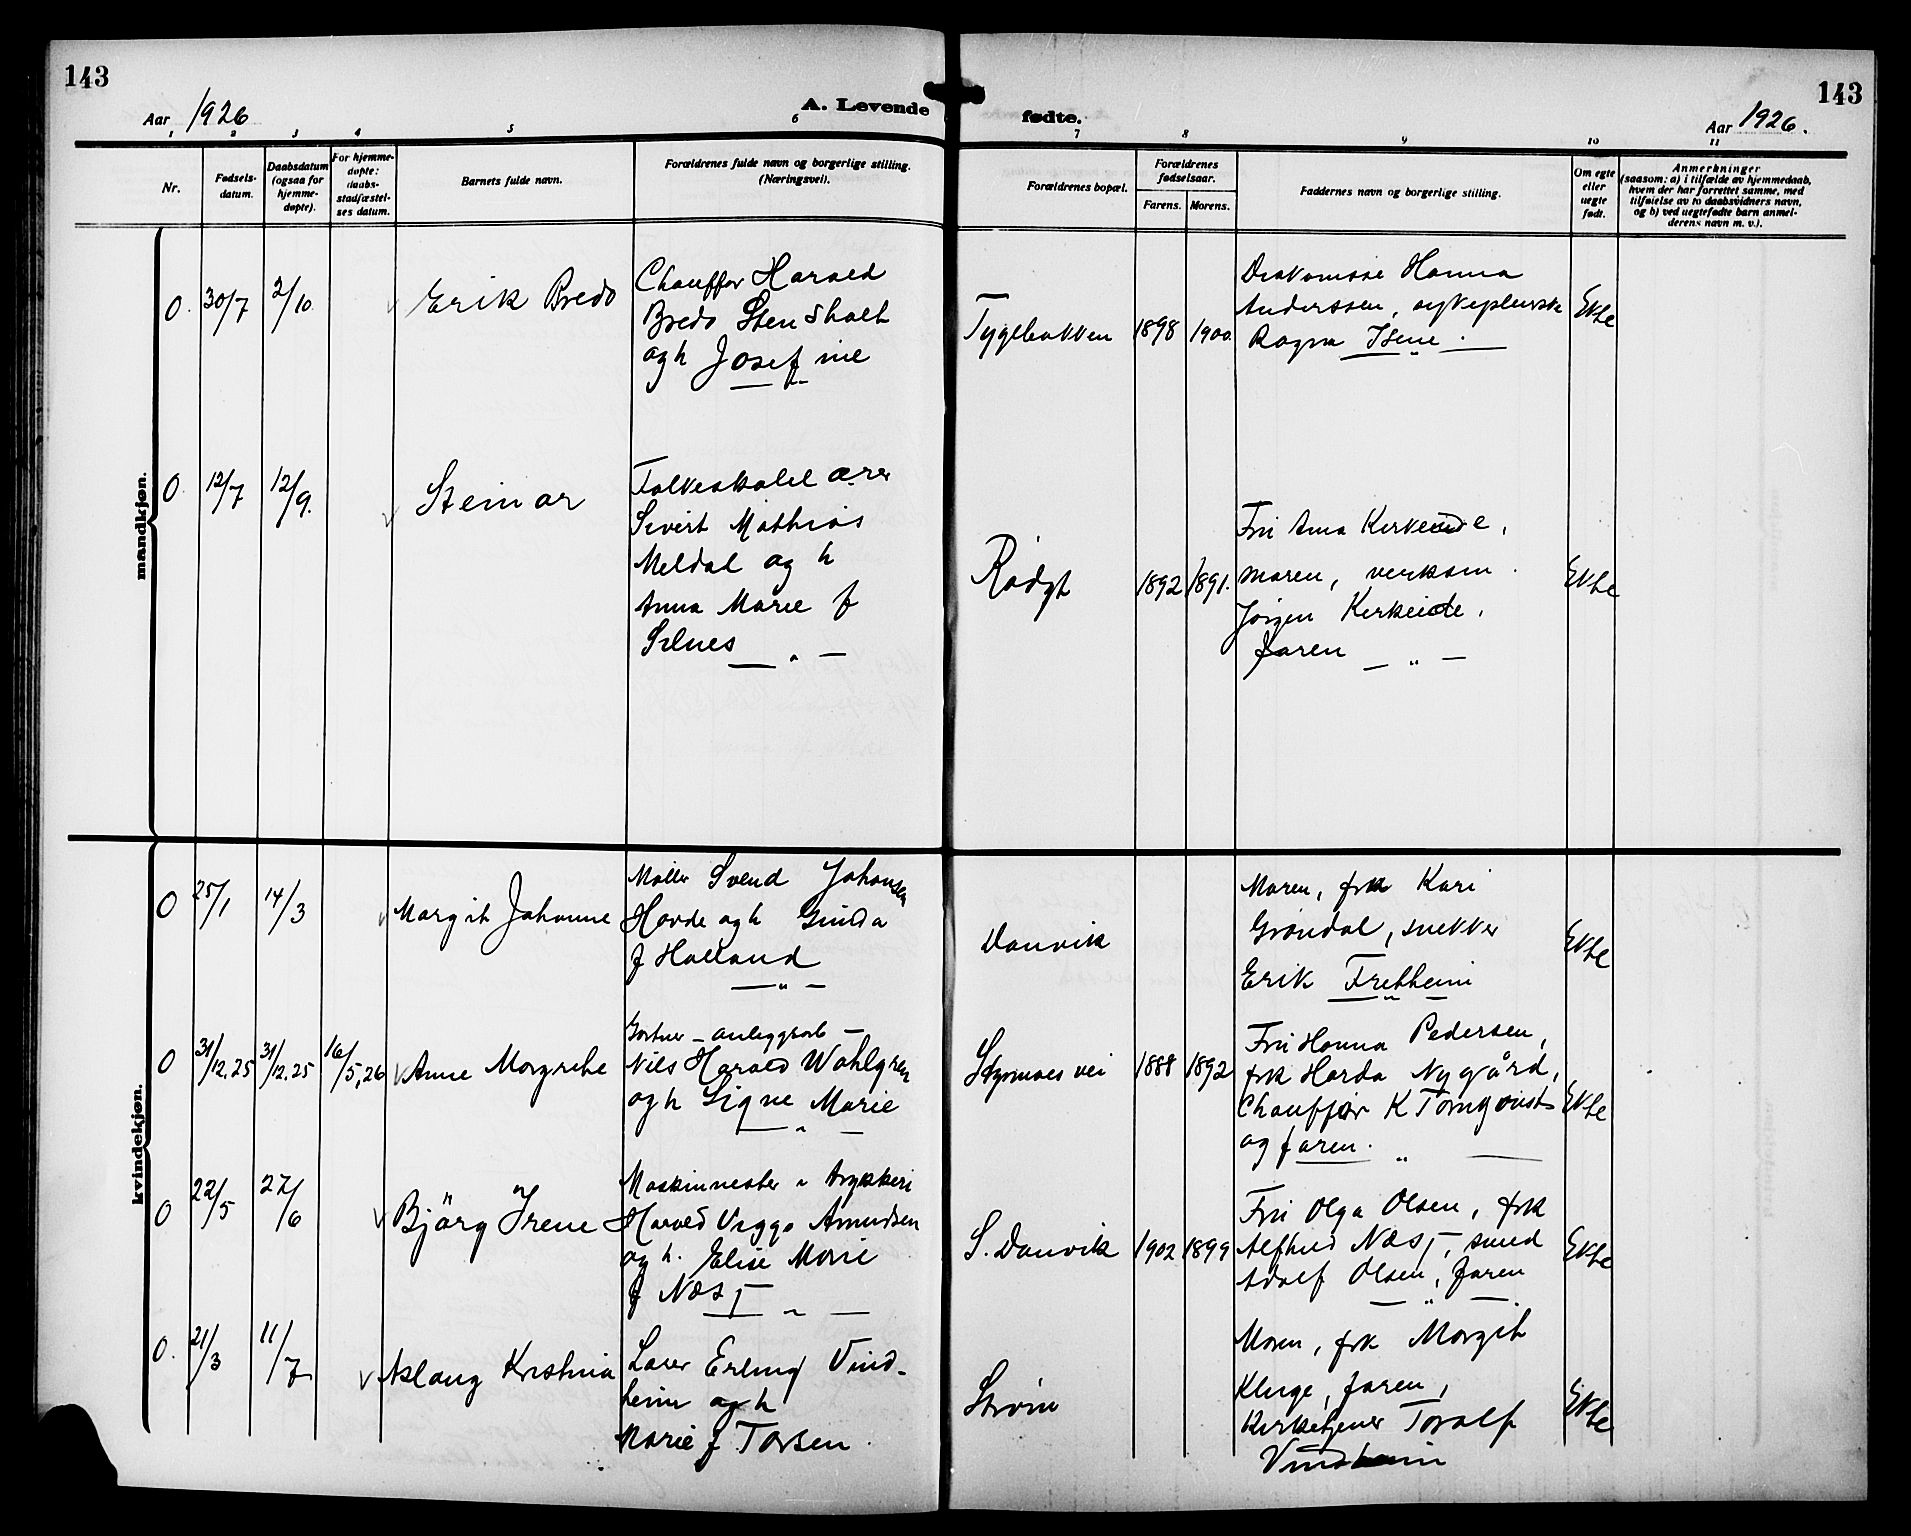 143
Aar 1926
A. Levende
fødte.
Aar 1926.
143
1 2 3 4 5 6 7 8 9 10 11
Nr.
Fødsels-
datum.
Daabsdatum
(ogsaa for
hjemme-
døpte).
For hjemme-
døpte:
daabs-
stadfæstel-
ses datum.
Barnets fulde navn.
Forældrenes fulde navn og borgerlige stilling.
(Næringsvei).
Forældrenes bopæl.
Forældrenes
fødselsaar.
Farens. Morens.
Faddernes navn og borgerlige stilling.
Om egte
eller
uegte
født.
Anmerkninger
(saasom: a) i tilfælde av hjemmedaab,
hvem der har forrettet samme, med
tilføielse av to daabsvidners navn,
og b) ved uegtefødte barn anmel-
derens navn m. v.).
mandkjøn.
0. 30/7 2/10 Erik Bredo
Chauffør Harald
Bredo Stensholt
og h Josefine
1898 1900.
Hanna
Anderssen,
Ragna Isene.
Ekte
0 12/7 12/9. Steinar
Folkeskolelærer
Sivert Mathias
Meldal og h
Anna Marie f
Silnes
1892 1891.
Fru Anna Kirkeide,
moren,
Jørgen Kirkeide,
faren
Ekte
kvindekjøn.
0 25/1 14/3 Margit Johanne
Møller Svend Johansen
Hovde og h Gunda
f Holland
Danvik
Moren, frk Kari
Grøndal, snekker
Erik Fretheim
Ekte
0 31/12.25 31/12.25 16/5,26 Anne Margrethe
Gartner - anleggsarb -
Nils Harald Wahlgren
og h Signe Marie
1888 1892
Fru Hanna Pedersen,
frk Harda Nygård,
Chauffør K Tornqvist
og faren.
Ekte
0 22/5 27/6 Bjørg Irene
Maskinmester i trykkeri
Harald Viggo Amundsen
og h. Elise Marie
f Næss
S. Danvik 1902 1899
Fru Olga Olsen, frk
Alfhild Næss, smed
Adolf Olsen, faren
Ekte
0. 21/3 11/7 Aslaug Kristina
Lærer Erling Vind-
heim og h
Marie f Torsen.
Strøm
Moren, frk Margit
Kluge, faren,
Kirketjener Toralf
Vindheim
Ekte